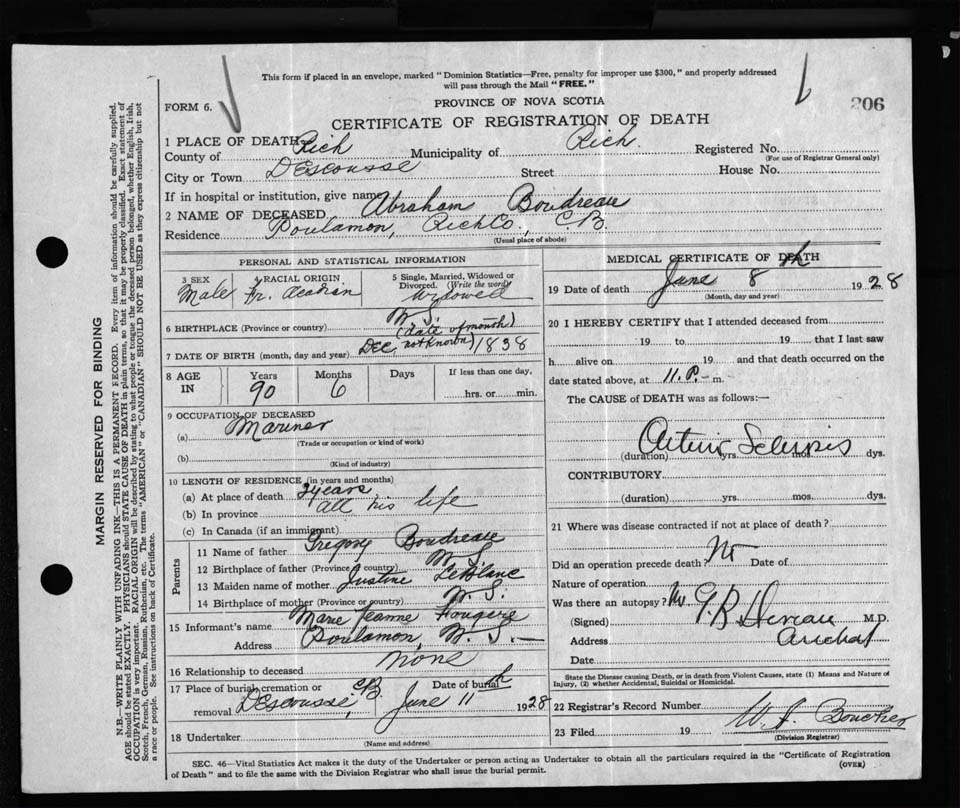 This form if placed in an envelope, marked "Dominion Statistics—Free, penalty for improper use $300," and properly addressed
will pass through the Mail "FREE."
FORM 6.
PROVINCE OF NOVA SCOTIA
206
CERTIFICATE OF REGISTRATION OF DEATH
1 PLACE OF DEATH
County of Rich Municipality of Rich. Registered No.
(For use of Registrar General only)
City or Town Descousse Street House No.
If in hospital or institution, give name
2 NAME OF DECEASED Abraham Boudreau
Residence Poulamon, Rich Co., C.B.
(Usual place of abode)
PERSONAL AND STATISTICAL INFORMATION
3 SEX 4 RACIAL ORIGIN 5 Single, Married, Widowed or
Divorced. (Write the word)
Male Fr. Acadian Widowed
6 BIRTHPLACE (Province or country) N.S.
(date of month)
7 DATE OF BIRTH (month, day and year) Dec. not known) 1838
8 AGE IN Years Months Days If less than one day,
90 6 hrs. or min.
9 OCCUPATION OF DECEASED
(a) Mariner
(Trade or occupation or kind of work)
(b)
(Kind of industry)
10 LENGTH OF RESIDENCE (in years and months)
(a) At place of death years
(b) In province all his life
(c) In Canada (if an immigrant)
Parents
11 Name of father Gregory Boudreau
12 Birthplace of father (Province or country) N.S.
13 Maiden name of mother Justine LeBlanc
14 Birthplace of mother (Province or country) N.S.
15 Informant's name Marie Jeanne Fougere
Address Poulamon, N.S.
16 Relationship to deceased none
17 Place of burial, cremation or Date of burial
removal Descousse, C.B. June 11th 1928
18 Undertaker
(Name and address)
MEDICAL CERTIFICATE OF DEATH
19 Date of death June 8th 1928
(Month, day and year)
20 I HEREBY CERTIFY that I attended deceased from
19 to 19 that I last saw
h alive on 19 and that death occurred on
date stated above, at 11. P. m.
The CAUSE of DEATH was as follows:—
(duration) yrs. mos. dys.
CONTRIBUTORY
(duration) yrs. mos. dys.
21 Where was disease contracted if not at place of death?
Did an operation precede death? No Date of
Nature of operation
Was there an autopsy? No
(Signed) M.D.
Address Arichat
Date
State the Disease causing Death, or in death from Violent Causes, state (1) Means and Nature of
Injury, (2) whether Accidental, Suicidal or Homicidal.
22 Registrar's Record Number
23 Filed 19 W. J. Boucher
(Division Registrar)
SEC. 46—Vital Statistics Act makes it the duty of the Undertaker or person acting as Undertaker to obtain all the particulars required in the "Certificate of Registration
of Death" and to file the same with the Division Registrar who shall issue the burial permit.
(OVER)
MARGIN RESERVED FOR BINDING
N.B.—WRITE PLAINLY WITH UNFADING INK—THIS IS A PERMANENT RECORD. Every item of information should be carefully supplied.
AGE should be stated EXACTLY. PHYSICIANS should STATE CAUSE OF DEATH in plain terms, so that it may be properly classified. Exact statement of
OCCUPATION is very important. RACIAL ORIGIN will be described by stating to what people or tongue the deceased person belonged, whether English, Irish,
Scotch, French, German, Russian, Ruthenian, etc. The terms "AMERICAN" or "CANADIAN" SHOULD NOT BE USED as they express citizenship but not
a race or people. See instructions on back of Certificate.